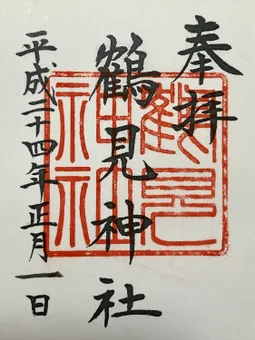 奉拝
鶴見神社
平成二十四年 正月一日
鶴見
神社